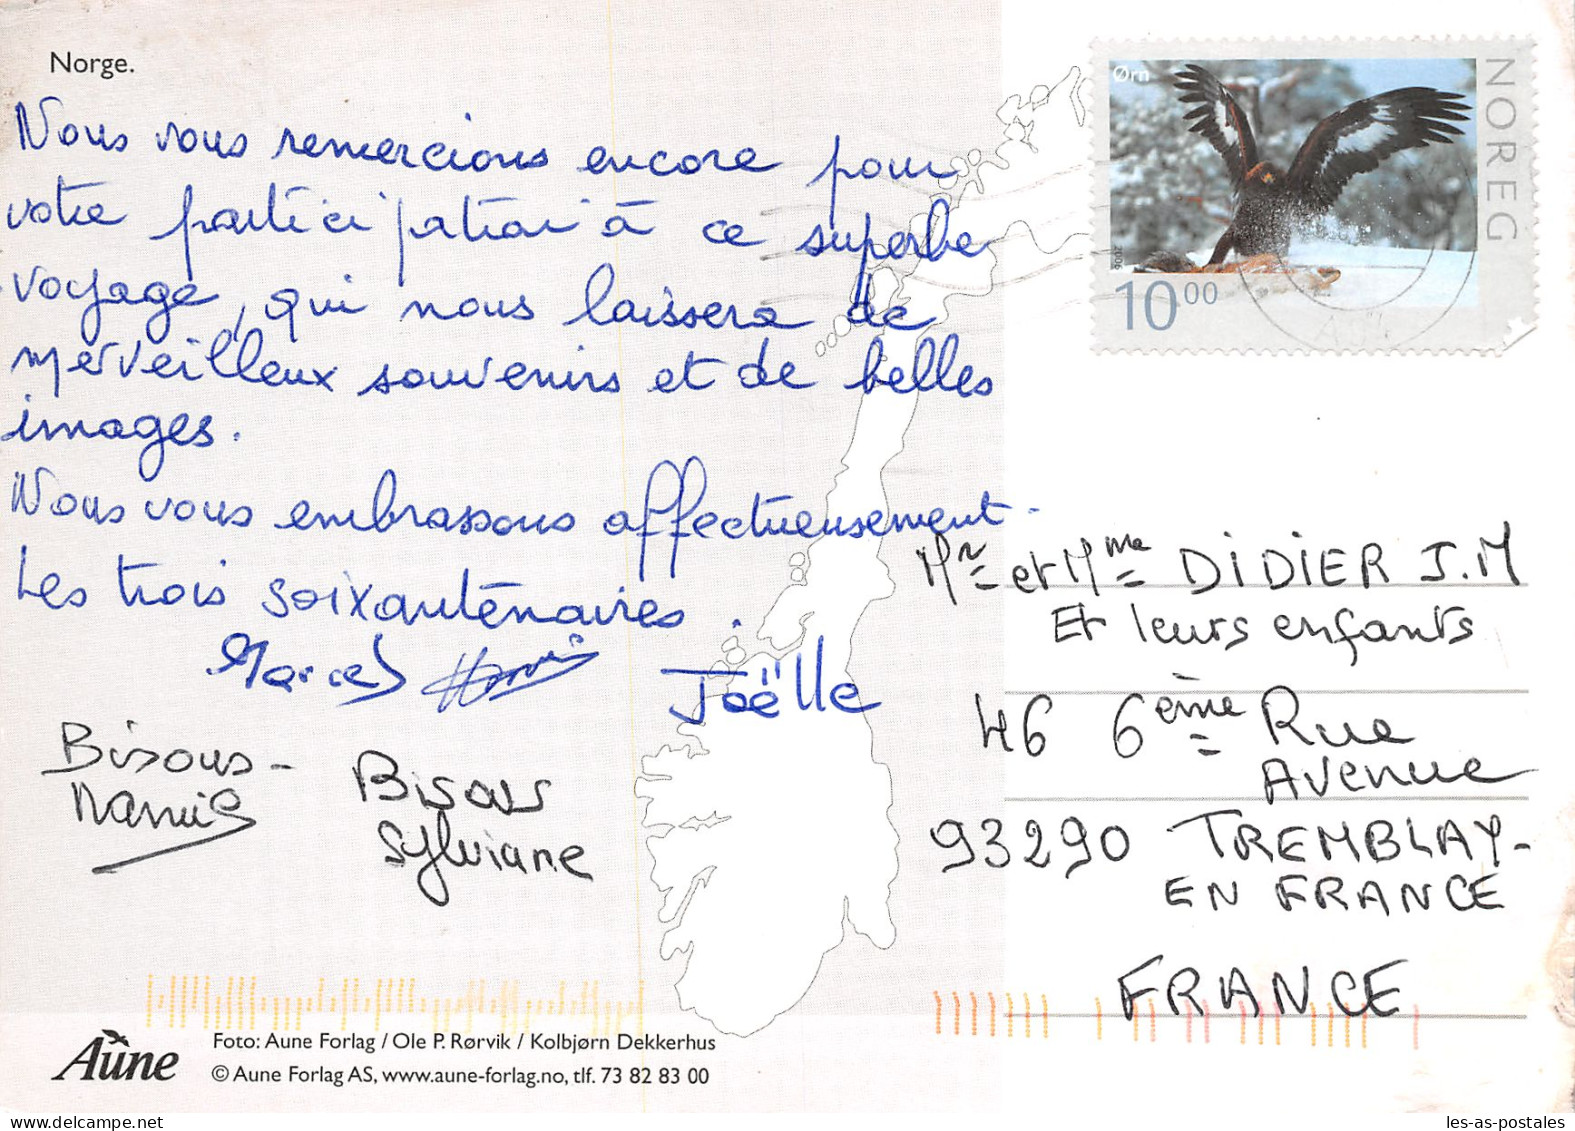 Norge.
Nous vous remercions encore pour
votre participation à ce superbe
voyage, qui nous laissera de
merveilleux souvenirs et de belles
images.
Nous vous embrassons affectueusement.
Les trois soixanténaires.
Marcel
Joëlle
Bisous-
Bisous
Sylviane
Ørn
NOREG
2006
10 00
Mr et Mme DiDiER J.M
Et leurs enfants
46 6ème Rue
Avenue
93290 TREMBLAY-
EN FRANCE
FRANCE
Aune
Foto: Aune Forlag / Ole P. Rørvik / Kolbjørn Dekkerhus
© Aune Forlag AS, www.aune-forlag.no, tlf. 73 82 83 00
delcampe.net
les-as-postales